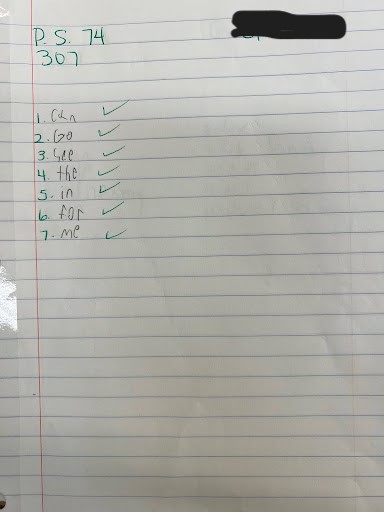 P.S. 74
307
1. Can ✓
2. Go ✓
3. See ✓
4. the ✓
5. in ✓
6. for ✓
7. me ✓